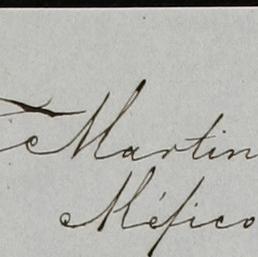 Martin
Méjico